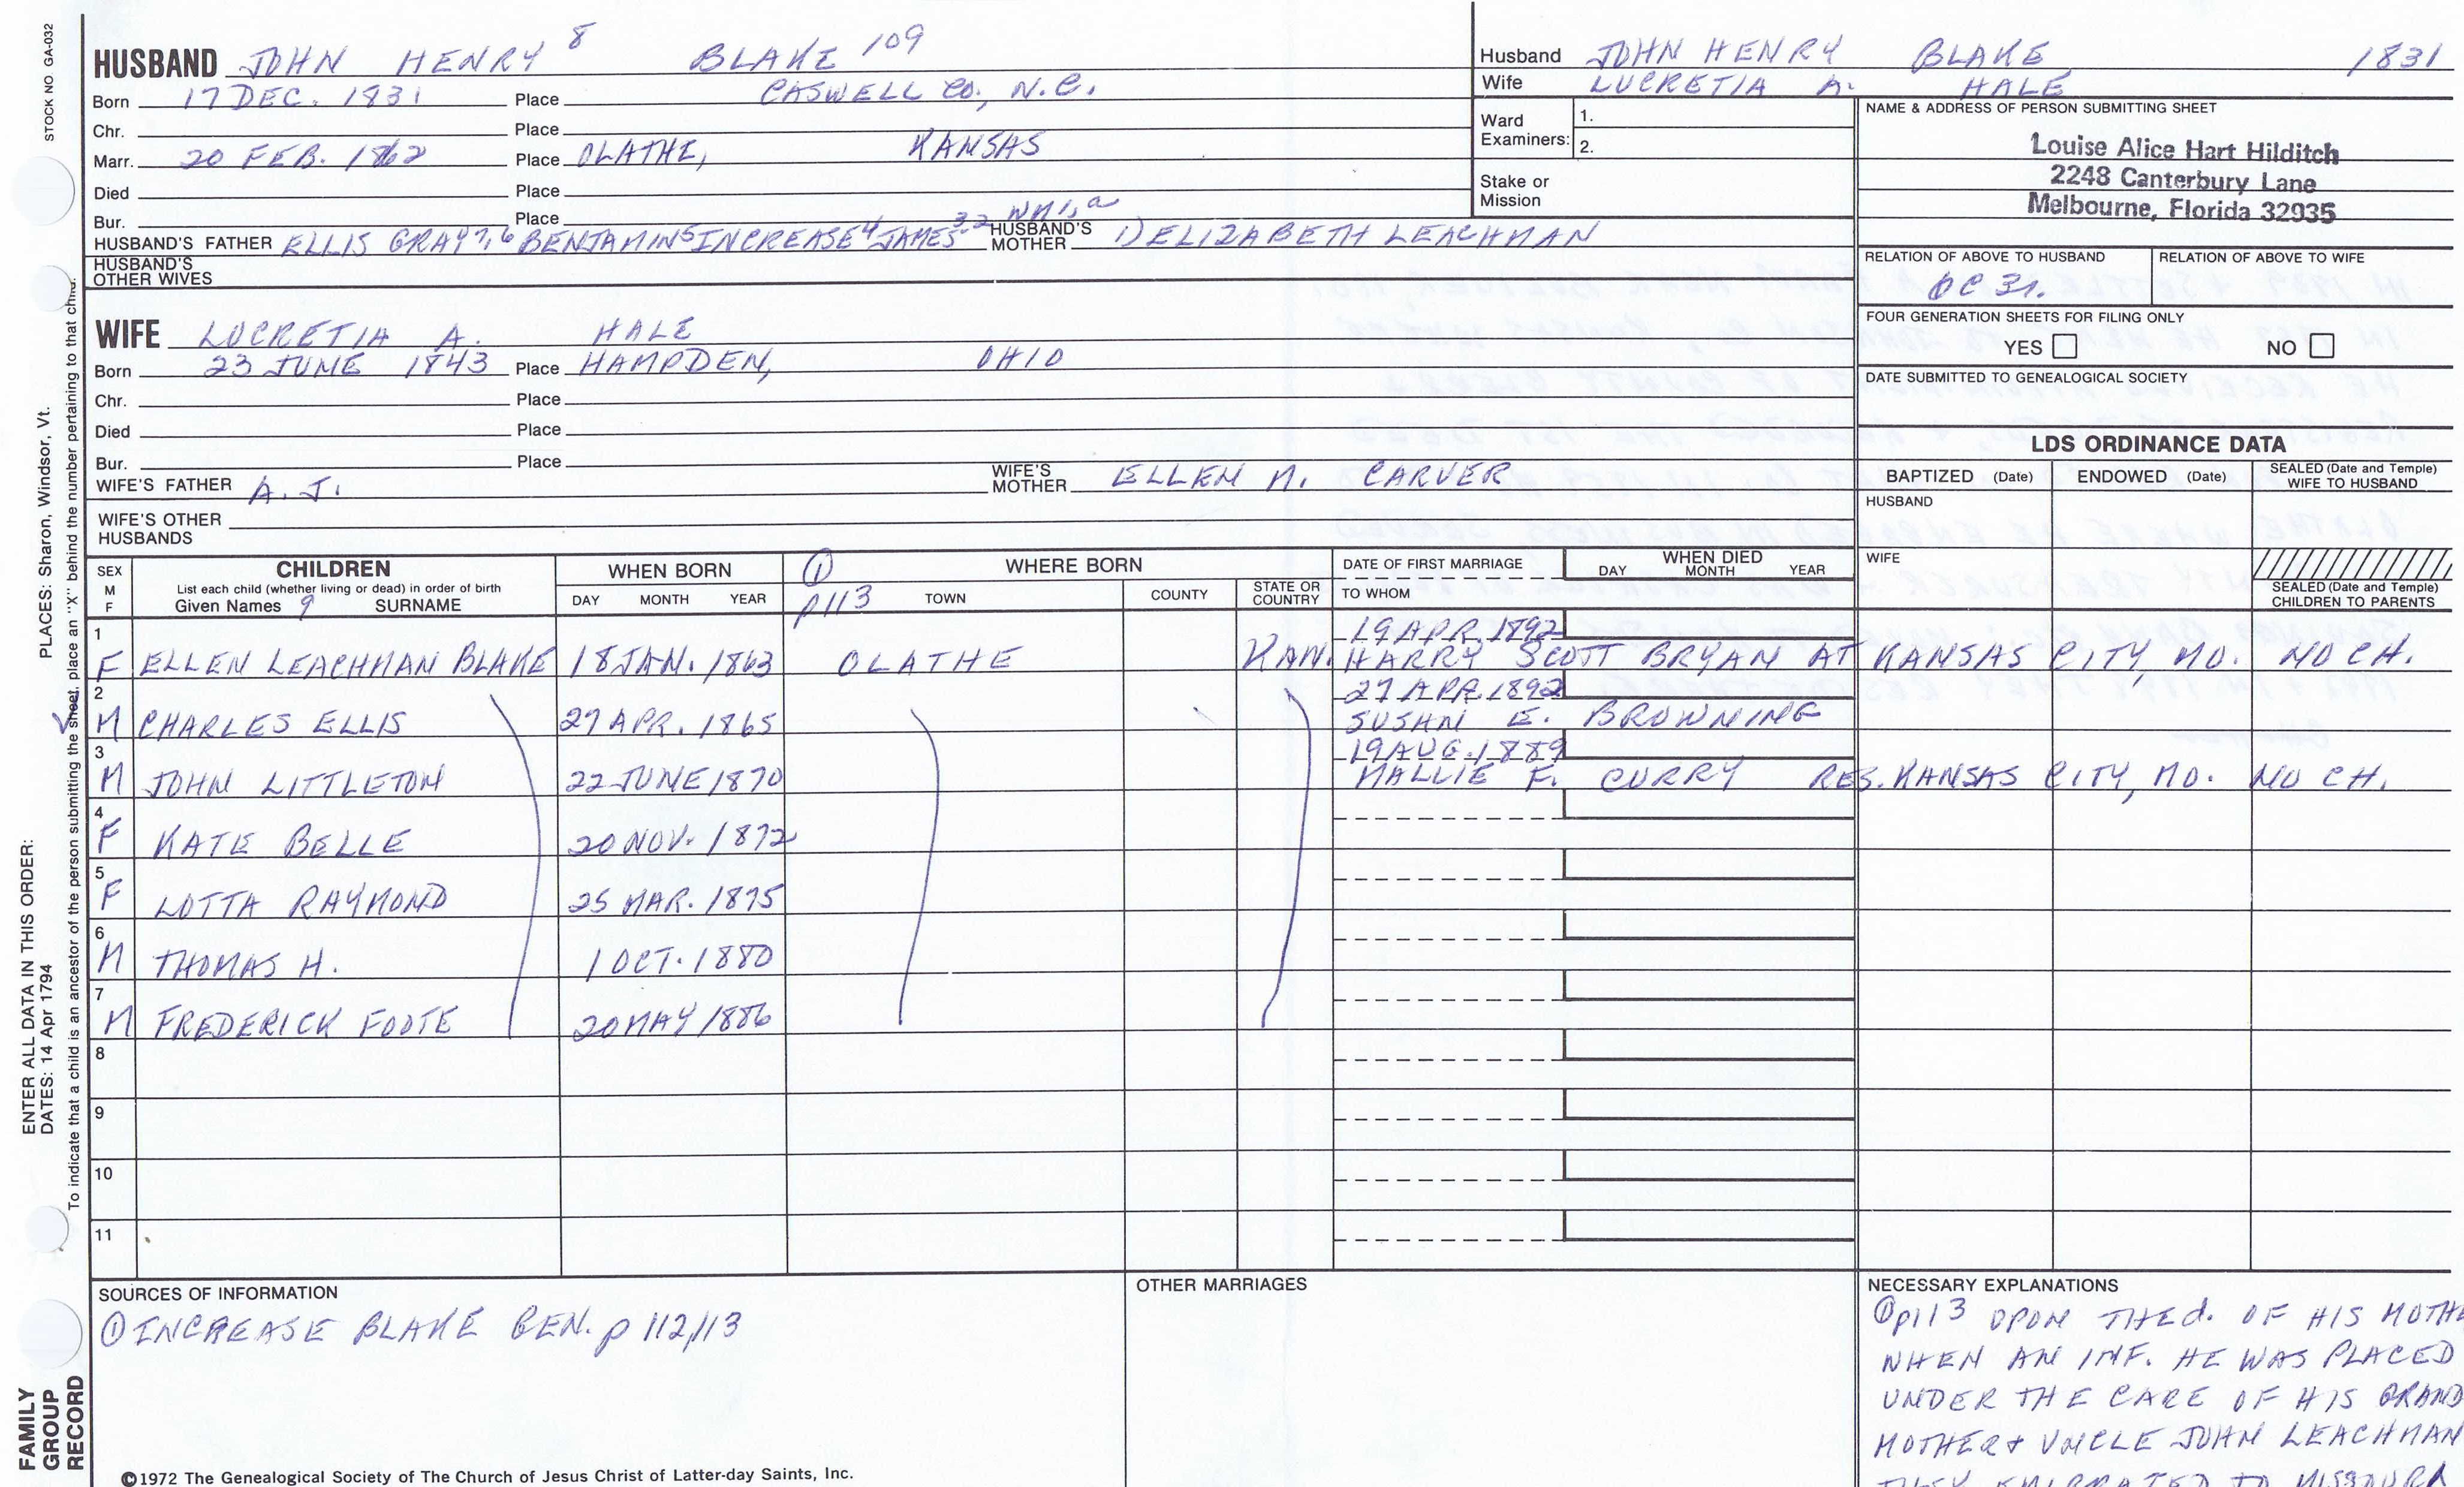 STOCK NO GA-032
HUSBAND JOHN HENRY 8 BLAKE 109
Born 17 DEC. 1831 Place CASWELL CO., N.C.
Chr. Place
Marr. 20 FEB. 1862 Place OLATHE, KANSAS
Died Place
Bur. Place
HUSBAND'S FATHER ELLIS GRAY 7,6 BENJAMIN 5 INCREASE 4 JAMES 3-2 WM 1,a HUSBAND'S MOTHER 1) ELIZABETH LEACHMAN
HUSBAND'S OTHER WIVES
WIFE LUCRETIA A. HALE
Born 23 JUNE 1843 Place HAMPDEN, OHIO
Chr. Place
Died Place
Bur. Place
WIFE'S FATHER A. J. WIFE'S MOTHER ELLEN M. CARVER
WIFE'S OTHER HUSBANDS
Husband JOHN HENRY BLAKE 1831
Wife LUCRETIA A. HALE
Ward Examiners: 1.
2.
Stake or Mission
NAME & ADDRESS OF PERSON SUBMITTING SHEET
Louise Alice Hart Hilditch
2248 Canterbury Lane
Melbourne, Florida 32935
RELATION OF ABOVE TO HUSBAND RELATION OF ABOVE TO WIFE
FOUR GENERATION SHEETS FOR FILING ONLY
YES NO
DATE SUBMITTED TO GENEALOGICAL SOCIETY
LDS ORDINANCE DATA
BAPTIZED (Date) ENDOWED (Date) SEALED (Date and Temple) WIFE TO HUSBAND
HUSBAND
WIFE
SEALED (Date and Temple) CHILDREN TO PARENTS
SEX M F CHILDREN WHEN BORN ① WHERE BORN DATE OF FIRST MARRIAGE WHEN DIED
List each child (whether living or dead) in order of birth DAY MONTH YEAR
Given Names 9 SURNAME DAY MONTH YEAR p113 TOWN COUNTY STATE OR COUNTRY TO WHOM
1 19 APR. 1892
F ELLEN LEACHMAN BLAKE 18 JAN. 1863 OLATHE KAN. HARRY SCOTT BRYAN AT KANSAS CITY, MO. NO CH.
2 27 APR. 1892
M CHARLES ELLIS 27 APR. 1865 SUSAN E. BROWNING
3 19 AUG. 1889
M JOHN LITTLETON 22 JUNE 1870 MALLIE F. CURRY RES. KANSAS CITY, MO. NO CH.
4
F KATE BELLE 20 NOV. 1872
5
F LOTTA RAYMOND 25 MAR. 1875
6
M THOMAS H. 1 OCT. 1880
7
M FREDERICK FOOTE 20 MAY 1886
8
9
10
11
SOURCES OF INFORMATION
① INCREASE BLAKE GEN. p 112,113
OTHER MARRIAGES
NECESSARY EXPLANATIONS
① p113 UPON THE d. OF HIS MOTHE
WHEN AN INF. HE WAS PLACED
UNDER THE CARE OF HIS GRAND
MOTHER + UNCLE JOHN LEACHMAN
THEY EMIGRATED TO MISSOURI
©1972 The Genealogical Society of The Church of Jesus Christ of Latter-day Saints, Inc.
FAMILY GROUP RECORD
ENTER ALL DATA IN THIS ORDER:
DATES: 14 Apr 1794
PLACES: Sharon, Windsor, Vt.
To indicate that a child is an ancestor of the person submitting the sheet, place an "X" behind the number pertaining to that child.